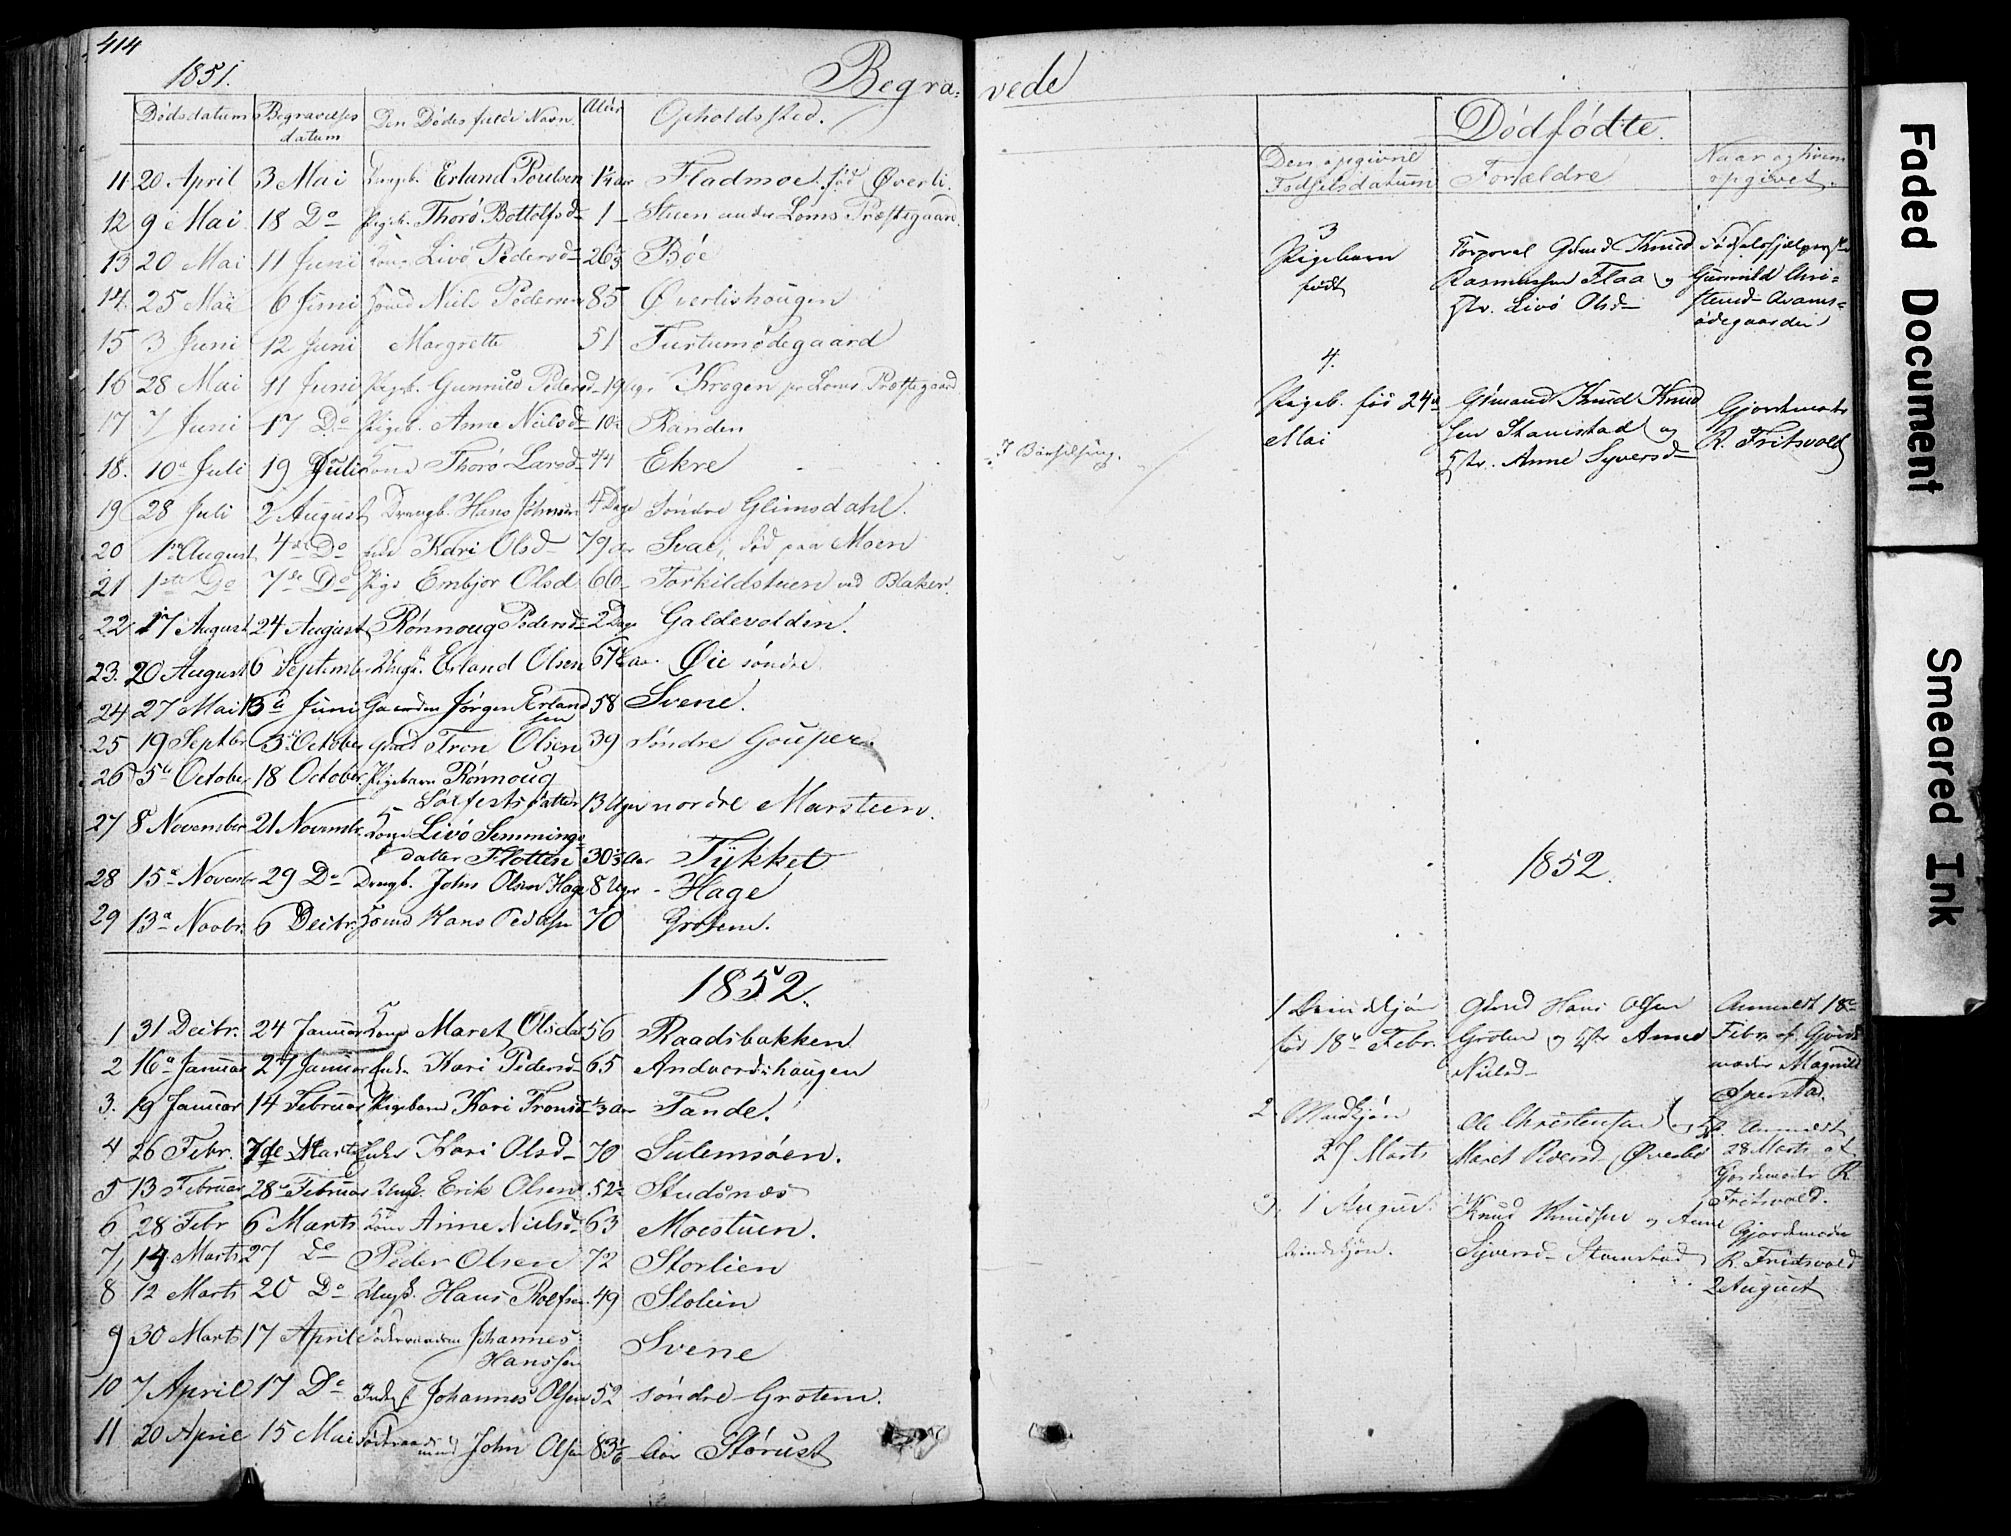 414
1851.
Begra=
vede
Dødsdatum Begravelses datum Den Dødes fulde Navn Alder Opholdssted.
11 20 April 3 Mai Drengb. Erland Poulsen 1¼ aar Fladmoe. fød Øverli.
12 9 Mai 18 Do Pigeb. Thorø Bottolfsd- 1 - Stuen under Loms Præstegaard
13 20 Mai 11 Juni Kone Livø Pedersd- 26 Bøe
14. 25 Mai 6 Juni Niels Pedersen 85 Øverlishougen
15 3 Juni 12 Juni Margrette 51 Turtumødegaard
16 28 Mai 11 Juni Pigeb. Gunnild Pedersd- 19 Uger Krogen Loms Præstegaard
17 7 Juni 17 Do Pigeb. Anne Nielsd- 10 Randen
18. 10 Juli 19 Juli Kone Thorø Larsd- 44 Ekre
I Barselseng.
19 28 Juli 2 August Drengb. Hans Johnsen 4 Dage Søndre Glimsdahl.
20 1 August 4de Do Kari Olsd- 79 aar Svae, død paa Moen
21 1ste Do 7de Do Pige Embjør Olsd 66- Torkildstuen ved Blaker.
22 17 August 24 August Rønnoug Pedersd- 2 Dage Galdevolden.
23. 20 August 6 Septembr Ungk. Erland Olsen 67½ aar. Øie søndre.
24 27 Mai 13 Juni Gaardm Jørgen Erland
sen 58 Svene.
25 19 Septbr 3 October Gmd Tron Olsen 39 Søndre Gouper.
26 5 October 18 October Pigebarn Rønnoug
Solfestsdatter 13 Uger nordre Marsteen.
27 8 November 21 Novembr. Kone Livø Semmings
datter Flotten 30 Aar Tykket
28 15 Novembr 29 Do Drengb. John Olsen Hage 8 Uger - Hage
29 13 Novbr. 6 Decbr. Hans Pedersen 70 Grotem.
1852.
1 31 Decbr. 24 Januar Kone Maret Olsdat 56 Raadsbakken
2 16 Januar 27 Januar Enke Kari Pedersd- 65 Andvordshougen
3. 19 Januar 14 Februar Pigebarn Kari Tronsd- ⅓ Aar Tande.
4 26 Febr. 7de Marts Enke Kari Olsd- 70 Sulemsøen.
5 13 Februar 28 Februar Ungk. Erik Olsen 52½ Studsnæs
6 28 Febr 6 Marts Kone Anne Nielsd- 63 Moestuen.
7, 14 Marts 27 Do Peder Olsen 72 Storlien
8 12 Marts 20 Do Ungk. Hans Rolfsen 49 Stolen
9 30 Marts 17 April Føderaadsm Johannes
Hanssen Svene
10 7 April 17 Do Johannes Olsen 52 søndre Grotem.
11 20 April 15 Mai Føderaads
mand John Olsen 83 Aar Størust
Dødfødte.
Den opgivne Fødselsdatum Forældre Naar og hvem opgivet.
3
Pigebarn
født
Corporal Gmd Knud
Rasmussen Flaa og
Hstr. Livø Olsd-
Fødselshjelperske
Gunnild Chri-
stensd- Avams-
ødegaarden
4.
Pigeb. fød 24
Mai
Gmand Knud Knud
sen Stamstad og
Hstr. Anne Syversd-
Gjordemoder
R. Fritsvold
1852.
1 Qvindekjøn
fød 18 Febr.
Gmd Hans Olsen
Grotem og Hstr Anne
Nielsd-
Anmeldt 18
Febr. af Gjorde
moder Magnild
2 Mandkjøn
27 Marts
Ole Christensen og H.
Maret Pedersd- Øverlie
Anmeldt
28 Marts af
Gjordemoder R.
Fritsvold.
3. 1 August
Qvindekjøn.
Knud Knudsen og Anne
Syversd- Stamstad
Gjordemoder
R. Fridsvold
2 August
Faded Document
Smeared Ink